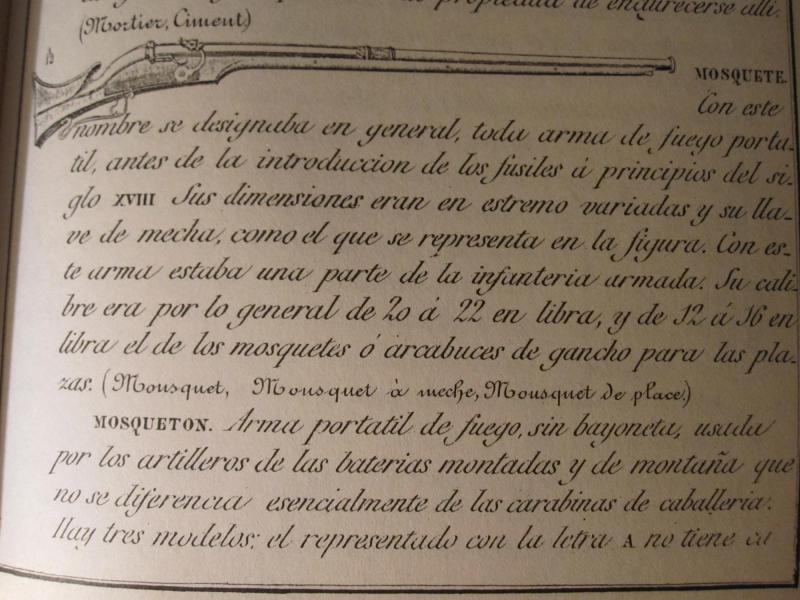 propiedad de endurecerse alli.
(Mortier, Ciment)
MOSQUETE.
Con este
nombre se designaba en general, toda arma de fuego porta-
til, antes de la introduccion de los fusiles á principios del si-
glo XVIII Sus dimensiones eran en estremo variadas y su lla-
ve de mecha, como el que se representa en la figura. Con es-
te arma estaba una parte de la infanteria armada. Su cali-
bre era por lo general de 20 á 22 en libra, y de 12 á 16 en
libra el de los mosquetes ó arcabuces de gancho para las pla-
zas. (Mousquet, Mousquet à meche, Mousquet de place.)
MOSQUETON. Arma portatil de fuego, sin bayoneta, usada
por los artilleros de las baterias montadas y de montaña que
no se diferencia esencialmente de las carabinas de caballeria.
Hay tres modelos: el representado con la letra A no tiene ca